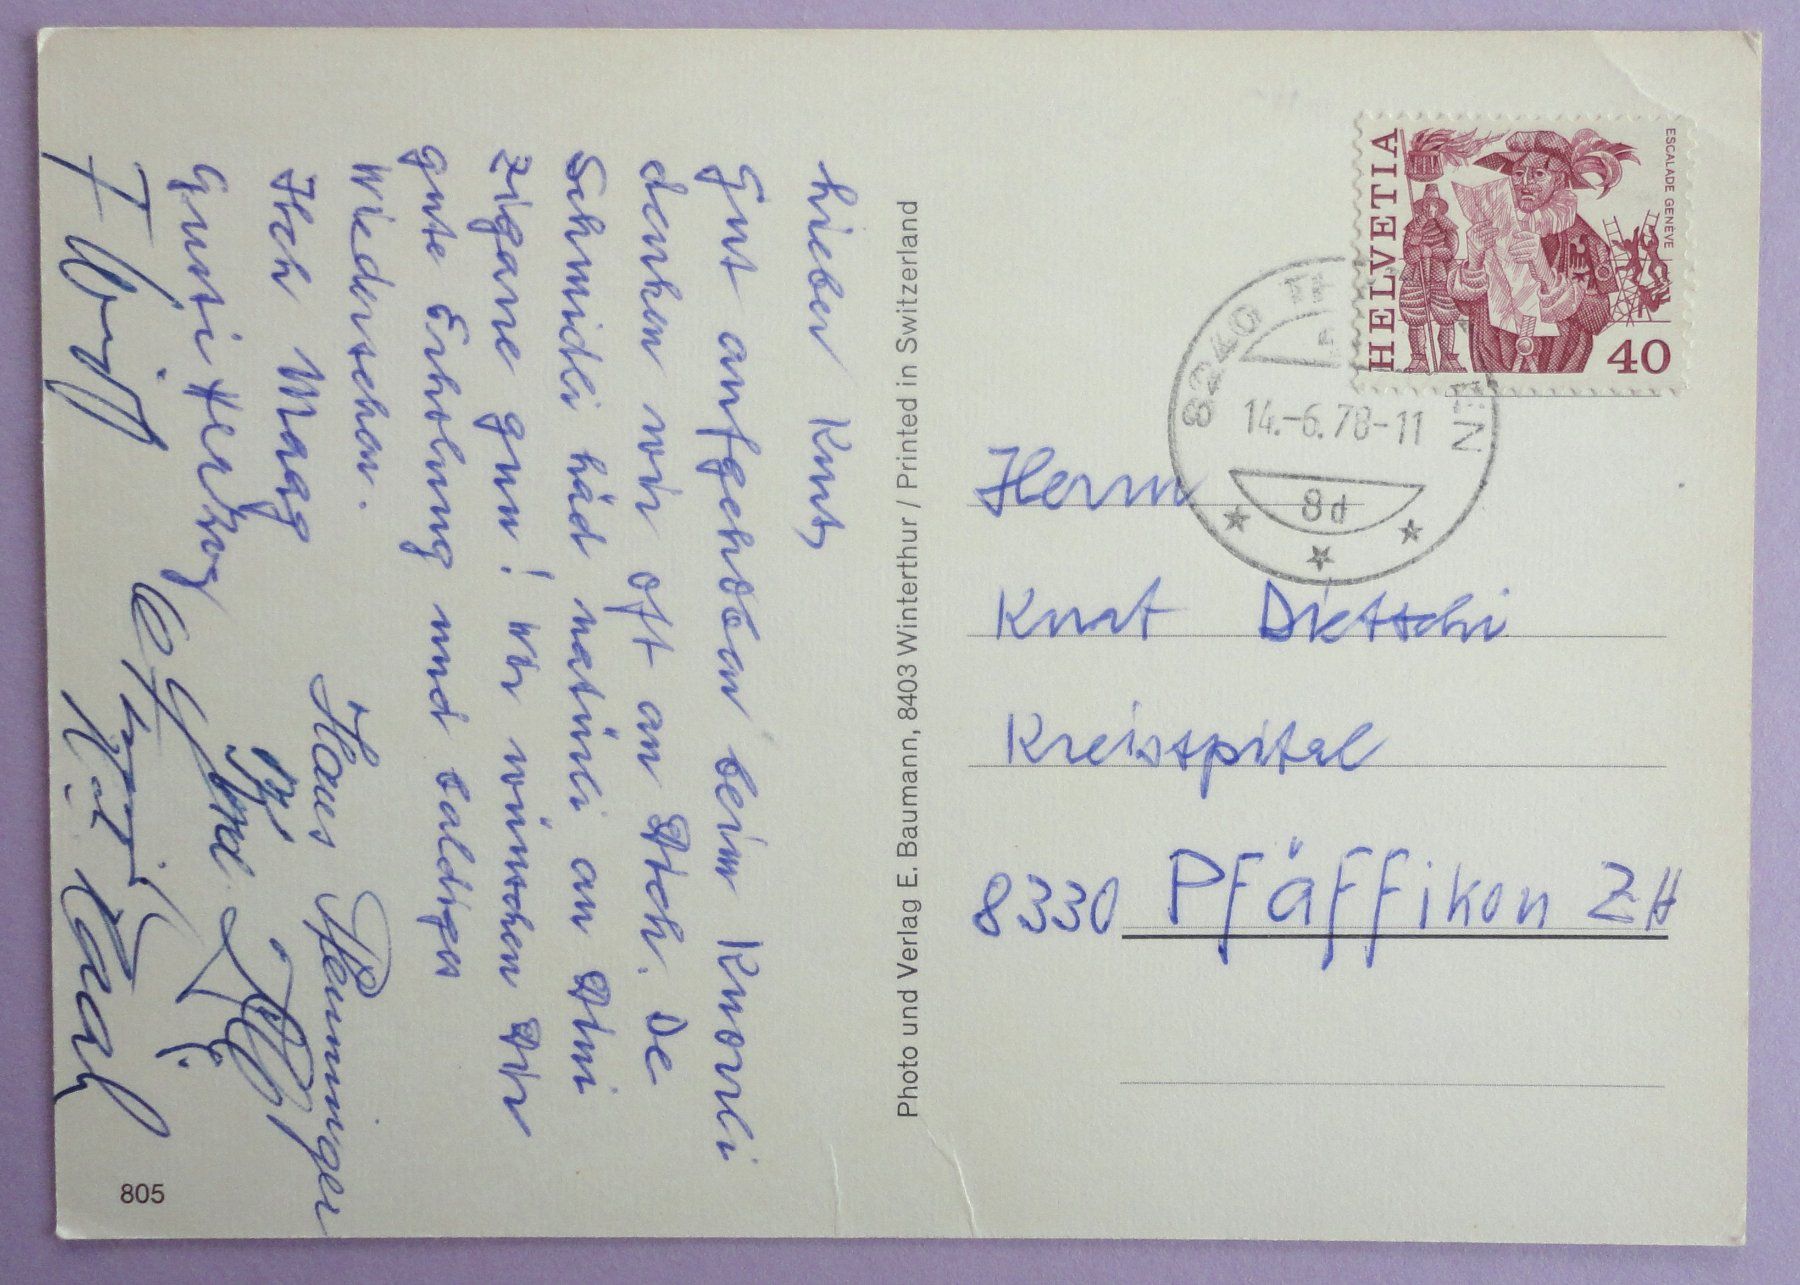 Lieber Knut,
Gut aufgehoben beim Knorrli
denken wir oft an Dich. De
Schmidli häd natürli au Dini
Zigare gnu! Wir wünschen Dir
gute Erholung und baldiges
Wiedersehen.
Ihch Maag
Gusti Herzog
Hans Pfenninger
805
Photo und Verlag E. Baumann, 8403 Winterthur / Printed in Switzerland
HELVETIA
ESCALADE GENÈVE
40
8240
14.-6.78-11
8d
Herrn
Knut Dietschi
Kreisspital
8330 Pfäffikon ZH